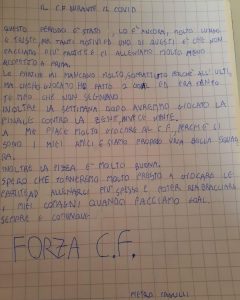 IL C.F. DURANTE IL COVID
QUESTO PERIODO È STATO, LO È ANCORA, MOLTO LUNGO
E TRISTE PER TANTI MOTIVI ED UNO DI QUESTI È CHE NON
FACCIAMO PIÙ PARTITE E CI ALLENIAMO MOLTO MENO
RISPETTO A PRIMA.
LE PARTITE MI MANCANO MOLTO SOPRATTUTTO PERCHÈ ALL'ULTI-
MA CHE HO GIOCATO HO FATTO GOAL ED ERA TANTO
TEMPO CHE NON SEGNAVO.
INOLTRE LA SETTIMANA DOPO AVREMMO GIOCATO LA
FINALE CONTRO LA
A ME PIACE MOLTO GIOCARE AL C.F. PERCHÈ CI
SONO I MIEI AMICI E SIAMO PROPRIO UNA BELLA SQUAD
RA.
INOLTRE LA PIZZA È MOLTO BUONA.
SPERO CHE TORNEREMO MOLTO PRESTO A GIOCARE LE
PARTITE AD ALLENARCI PIÙ SPESSO E POTER RIABBRACCIARE
I MIEI COMPAGNI QUANDO FACCIAMO GOAL.
SEMPRE E COMUNQUE
FORZA C.F.
PIETRO